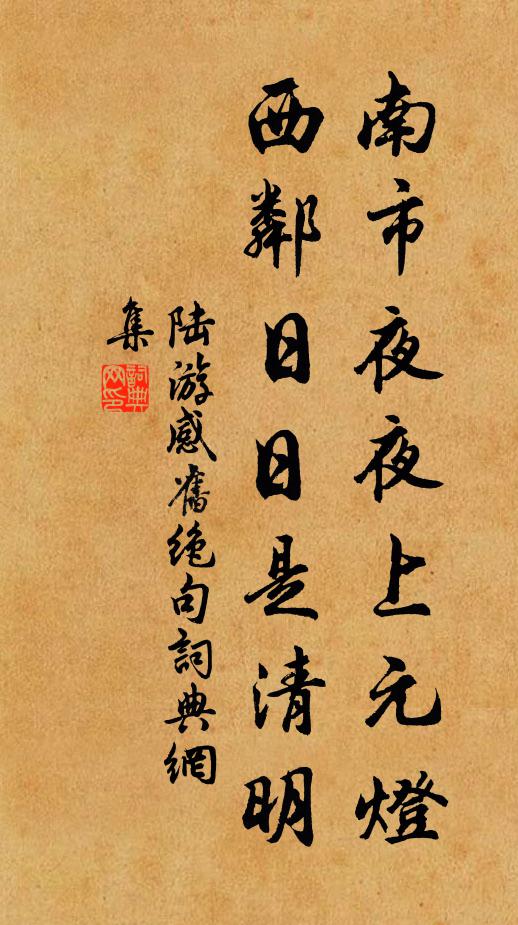 南市夜夜上元燈
西鄰日日是清明
陸游感舊絶句詞典網
集
詞典网印